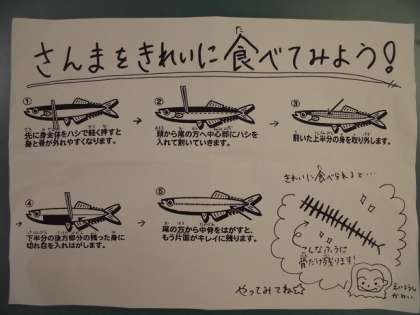 さんまをきれいに食べてみよう!
①
先に身全体をハシで軽く押すと
身と骨が外れやすくなります。
②
頭から尾の方へ中心部にハシを
入れて割いていきます。
③
割いた上半分の身を取り外します。
④
下半分の後方部分の残った身に
切れ目を入れはがします。
⑤
尾の方から中骨をはがすと、
もう片面がキレイに残ります。
きれいに食べられると…
こんなふうに
骨だけ残ります!
やってみてね☆